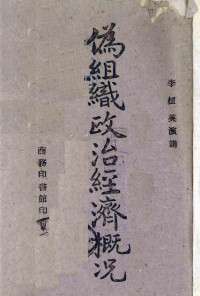 李超英演講
偽組織政治經濟概況
商務印書館印